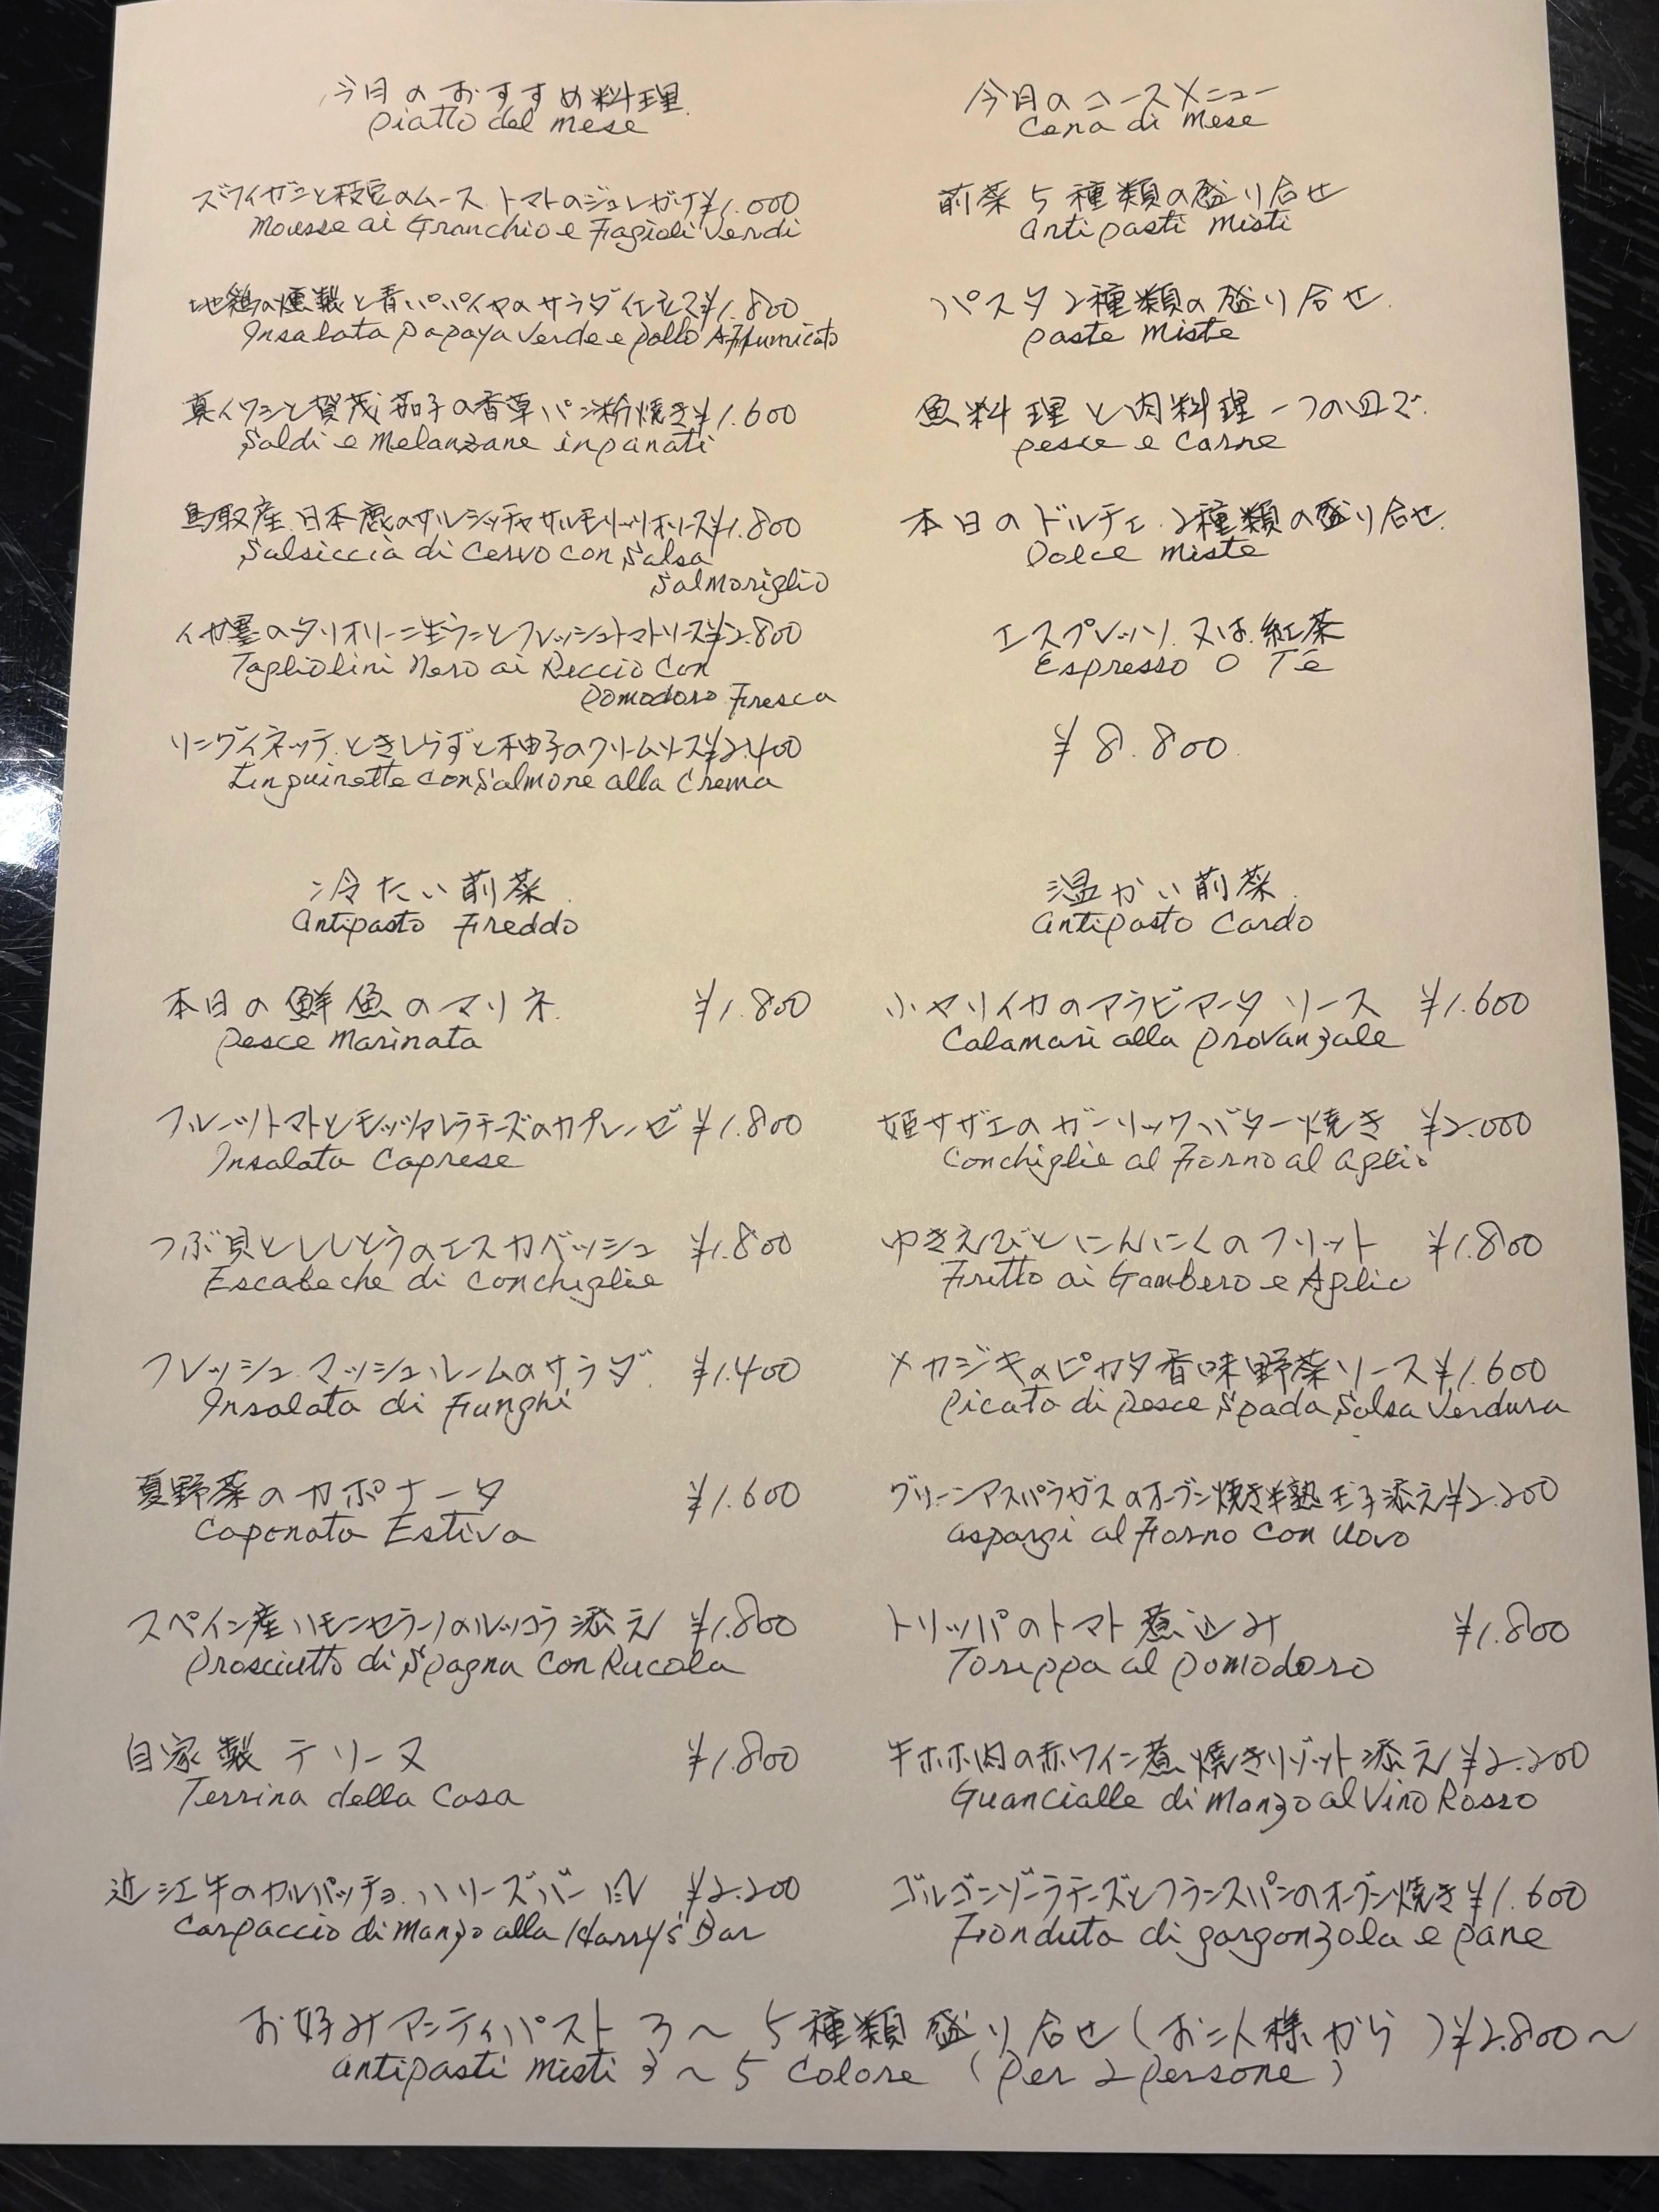 今月のおすすめ料理
piatto del mese
ズワイガニと枝豆のムース トマトのジュレがけ ¥1.000
Mousse ai Granchio e Fagioli Verdi
地鶏の燻製と青パパイヤのサラダ ¥1.800
Insalata papaya verde e pollo Affumicato
真イワシと賀茂茄子の香草パン粉焼き ¥1.600
Saldi e Melanzane inpanati
鳥取産 日本鹿のサルシッチャ サルモリッリオソース ¥1.800
Salsiccia di Cervo con Salsa
Salmoriglio
イカ墨のタリオリーニ生ウニとフレッシュトマトソース ¥2.800
Tagliolini Nero ai Riccio con
pomodoro Fresca
リングイネッテ ときしらずと柚子のクリームソース ¥2.400
Linguinette con Salmone alla Crema
今月のコースメニュー
Cena di Mese
前菜5種類の盛り合せ
Antipasti Misti
パスタ2種類の盛り合せ
paste Miste
魚料理と肉料理 一つの皿で
pesce e Carne
本日のドルチェ 2種類の盛り合せ
Dolce Miste
エスプレッソ 又は 紅茶
Espresso O Te
¥8.800
冷たい前菜
Antipasto Freddo
本日の鮮魚のマリネ ¥1.800
Pesce Marinata
フルーツトマトとモッツァレラチーズのカプレーゼ ¥1.800
Insalata Caprese
つぶ貝とししとうのエスカベッシュ ¥1.800
Escabeche di Conchiglie
フレッシュ マッシュルームのサラダ ¥1.400
Insalata di Funghi
夏野菜のカポナータ ¥1.600
Caponata Estiva
スペイン産ハモンセラーノのルッコラ添え ¥1.800
Prosciutto di Spagna con Rucola
自家製テリーヌ ¥1.800
Terrina della Casa
近江牛のカルパッチョ ハリーズバー風 ¥2.200
Carpaccio di Manzo alla Harry's Bar
温かい前菜
Antipasto Cardo
小ヤリイカのアラビアータ ソース ¥1.600
Calamari alla provanzale
姫サザエのガーリックバター焼き ¥2.000
Conchiglie al Forno al aglio
ゆきえびとにんにくのフリット ¥1.800
Fritto ai Gambero e Aglio
メカジキのピカタ香味野菜ソース ¥1.600
Picato di pesce Spada Salsa Verdura
グリーンアスパラガスのオーブン焼き半熟玉子添え ¥2.200
aspargi al Forno con Uovo
トリッパのトマト煮込み ¥1.800
Toreppa al pomodoro
牛ホホ肉の赤ワイン煮 焼きリゾット添え ¥2.200
Guancialle di Manzo al Vino Rosso
ゴルゴンゾーラチーズとフランスパンのオーブン焼き ¥1.600
Fonduta di gorgonzola e pane
お好みアンティパスト 3〜5種類盛り合せ(お二人様から) ¥2.800〜
antipasti misti 3〜5 Colore (per 2 persone)